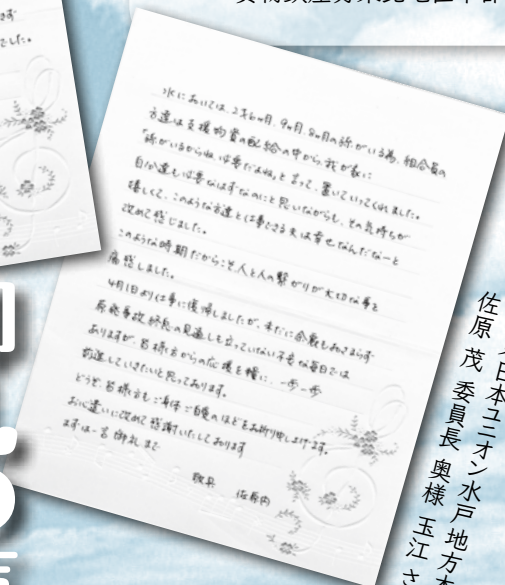 水においては、2才6ヵ月、9ヵ月、8ヵ月の孫がいる為、組合員の
方達は支援物資の配給の中から我が家に
「孫がいるからね、必要だよね」と言って、置いていってくれました。
自分達も必要なはずなのにと思いながらも、その気持ちが
嬉しくて、このような方達と仕事できる夫は幸せなんだなーと
改めて感じました。
このような時期だからこそ人と人の繋がりが大切な事を
痛感しました。
4月1日より仕事に復帰しましたが、未だに余震もおさまらず
原発事故終息の見通しも立っていない不安な毎日では
ありますが、皆様方からの応援を糧に、一歩一歩
前進していきたいと思っております。
どうぞ、皆様方もご身体ご自愛のほどをお祈り申し上げます。
お心遣いに改めて感謝いたしております
まずは一言御礼まで
敬具 佐原内
でした。
日本ユニオン水戸地方本
佐原 茂 委員長 奥様 玉江 さ